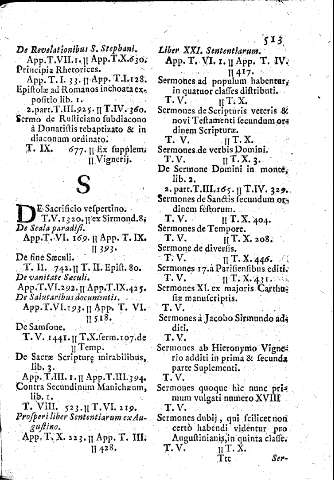 513
De Revelationibus S. Stephani.
App. T. VII. 1. || App. T. X. 630.
Principia Rhetorices.
App. T. I. 33. || App. T. I. 128.
Epistolæ ad Romanos inchoata ex-
positio lib. 1.
2. part. T. III. 925. || T. IV. 360.
Sermo de Rusticiano subdiacono
à Donatistis rebaptizato & in
diaconum ordinato.
T. IX. 677. || Ex supplem.
|| Vignerij.
S
DE Sacrificio vespertino.
T. V. 1320. || ex Sirmond. 8.
De Scala paradisi.
App. T. VI. 169. || App. T. IX.
|| 393.
De fine Sæculi.
T. II. 742. || T. II. Epist. 80.
De vanitate Sæculi.
App. T. VI. 292. || App. T. IX. 425.
De Salutaribus documentis.
App. T. VI. 193. || App. T. VI.
|| 518.
De Samsone.
T. V. 1441. || T. X. serm. 107. de
|| Temp.
De Sacræ Scripturæ mirabilibus,
lib. 3.
App. T. III. 1. || App. T. III. 394.
Contra Secundinum Manichæum,
lib. 1.
T. VIII. 523. || T. VI. 219.
Prosperi liber Sententiarum ex Au-
gustino.
App. T. X. 223. || App. T. III.
|| 428.
Liber XXI. Sententiarum.
App. T. VI. 1. || App. T. IV.
|| 417.
Sermones ad populum habentur,
in quatuor classes distributi.
T. V. || T. X.
Sermones de Scripturis veteris &
novi Testamenti secundum or-
dinem Scripturæ.
T. V. || T. X.
Sermones de verbis Domini.
T. V. || T. X. 3.
De Sermone Domini in monte,
lib. 2.
2. part. T. III. 165. || T. IV. 329.
Sermones de Sanctis secundum or-
dinem festorum.
T. V. || T. X. 404.
Sermones de Tempore.
T. V. || T. X. 208.
Sermone de diversis.
T. V. || T. X. 446.
Sermones 17. à Parisiensibus editi.
T. V. || T. X. 431.
Sermones XI. ex majoris Carthu-
siæ manuscriptis.
T. V.
Sermones à Jacobo Sirmundo ad-
diti.
T. V.
Sermones ab Hieronymo Vigne-
rio additi in prima & secunda
parte Suplementi.
T. V.
Sermones quoque hic nunc pri-
mum vulgati numero XVIII
T. V.
Sermones dubij, qui scilicet non
certò habendi videntur pro
Augustinianis, in quinta classe.
T. V. || T. X.
Ttt Ser-